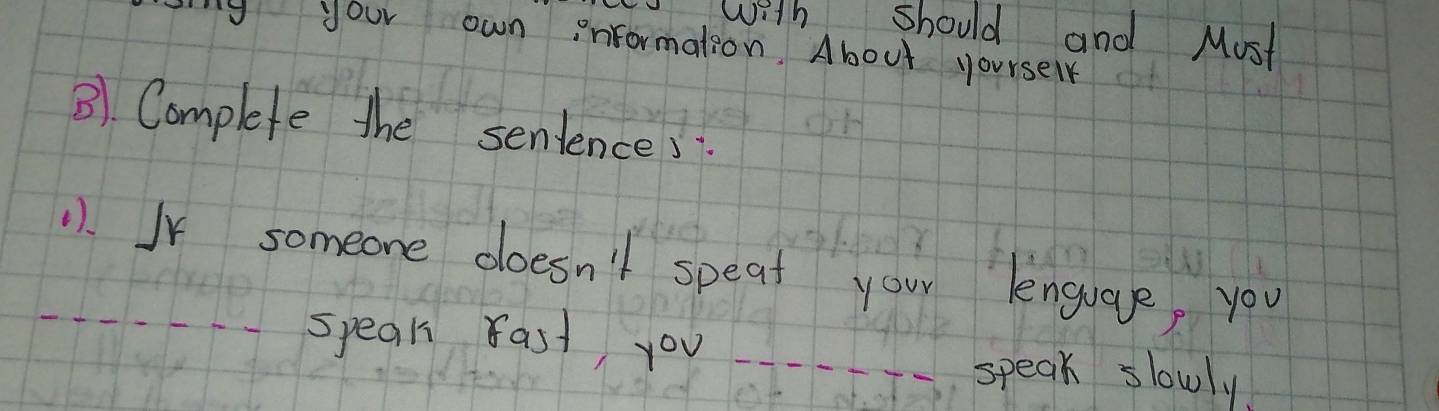 your own with should and Must
information. About yourself
B). Complete the sentences:.
1). If someone doesn't speat your lenguage, you
------- speak fast, you ------- speak slowly.